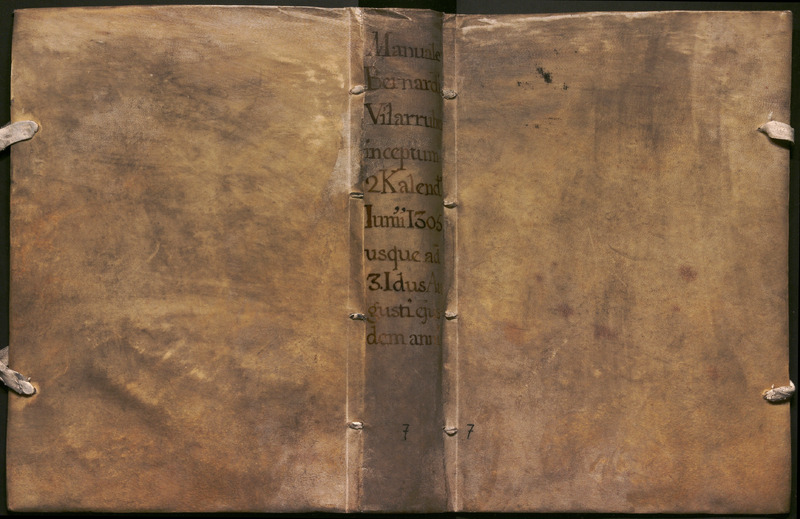 Manuale
Bernardi
Vilarrubi
inceptum
2 Kalend
Iunii 1305
usque ad
3. Idus Au
gusti ejus
dem anni
7 7